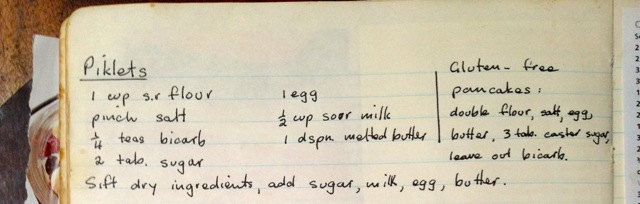 Piklets
1 cup s.r flour
pinch salt
1/4 teas bicarb
2 tab. sugar
1 egg
1/2 cup sour milk
1 dspn. melted butter
Sift dry ingredients, add sugar, milk, egg, butter.
Gluten-free
pancakes:
double flour, salt, egg,
butter, 3 tab. caster sugar,
leave out bicarb.